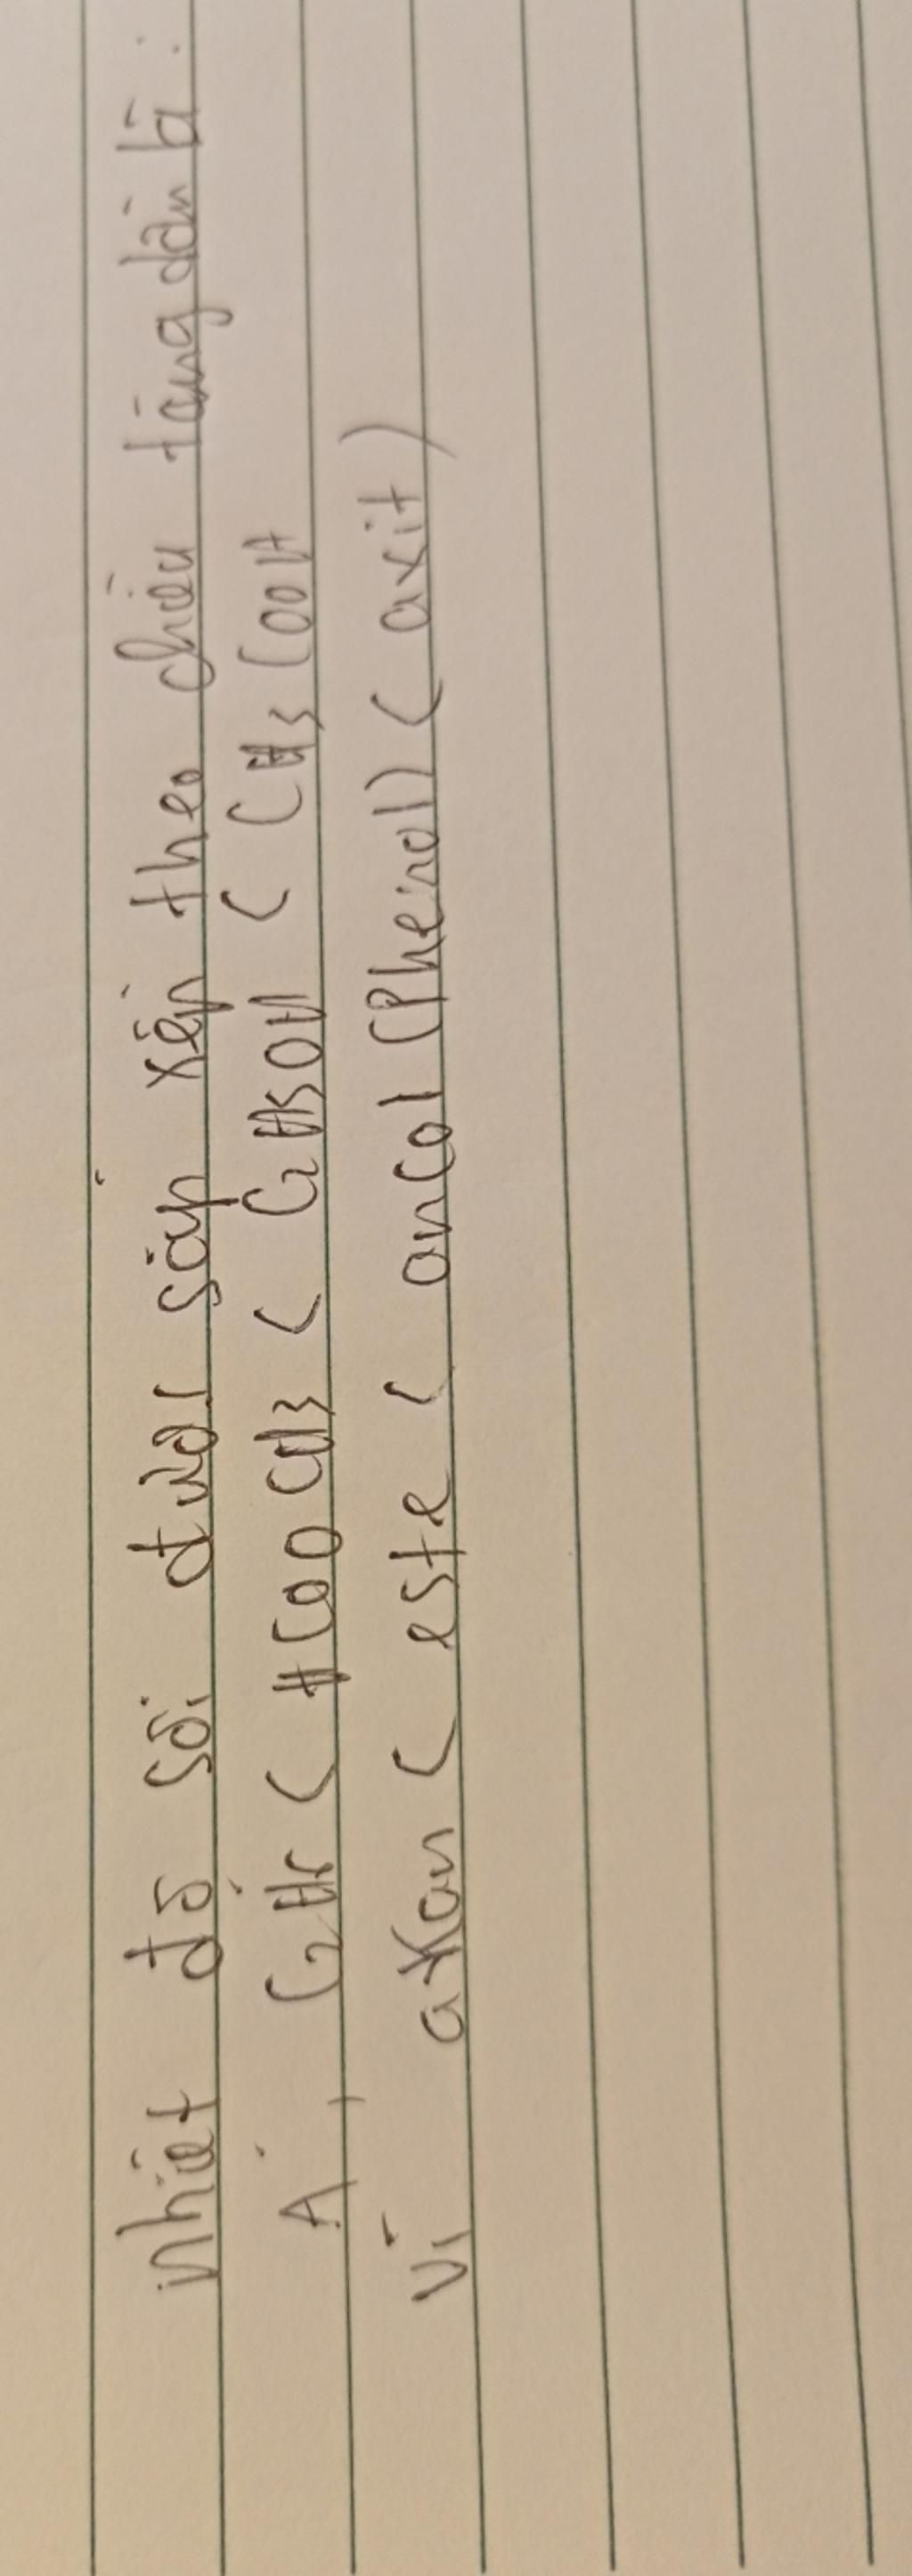 nhiệt độ sôi được sắp xếp theo chiều tăng dần là :
A, C2H6 < HCOOCH3 < C2H5OH < CH3COOH
Vì ankan < este < ancol (Phenol) < axit)